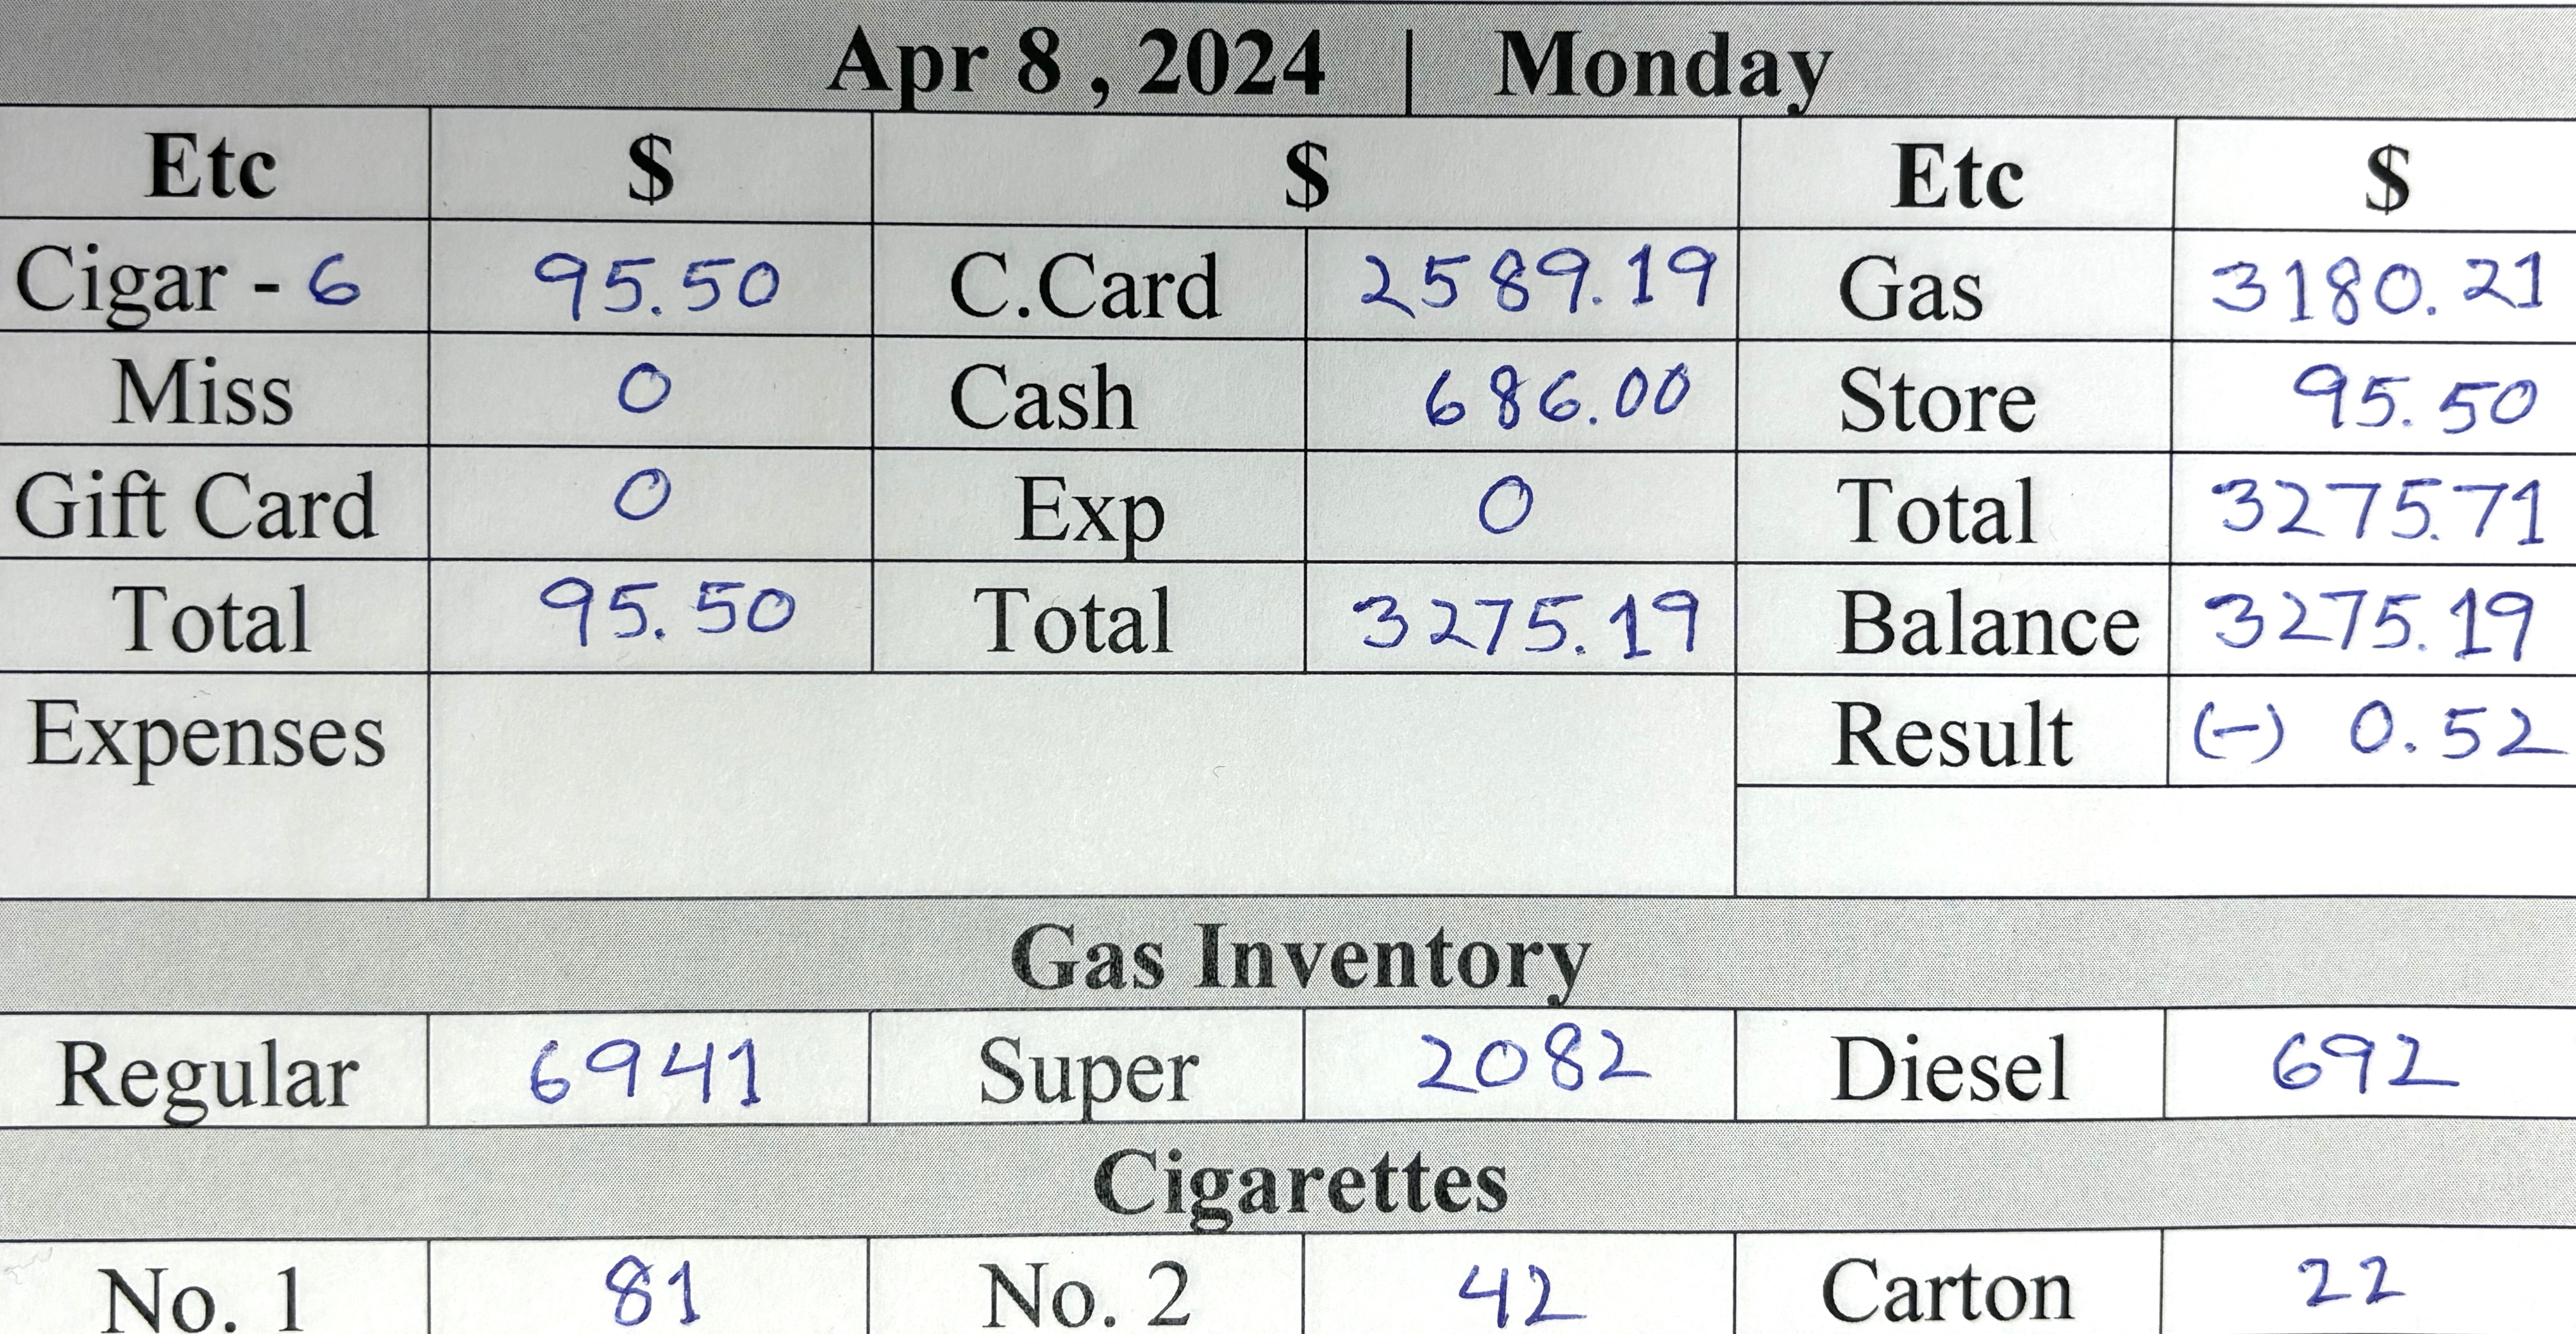 Apr 8 , 2024 | Monday
Etc $ $ Etc $
Cigar - 6 95.50 C.Card 2589.19 Gas 3180.21
Miss 0 Cash 686.00 Store 95.50
Gift Card 0 Exp 0 Total 3275.71
Total 95.50 Total 3275.19 Balance 3275.19
Expenses Result (-) 0.52
Gas Inventory
Regular 6941 Super 2082 Diesel 692
Cigarettes
No. 1 81 No. 2 42 Carton 22